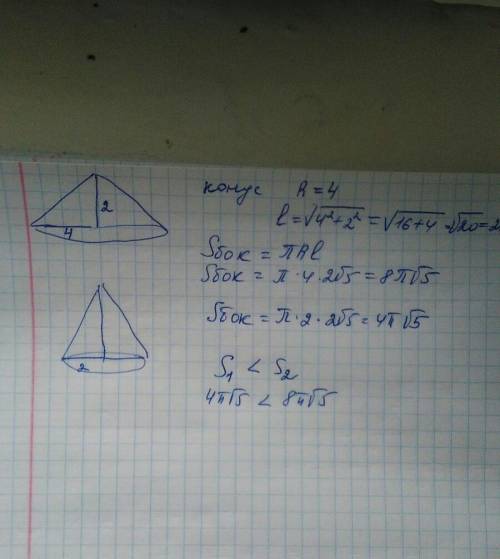 конус R = 4
l = √4²+2² = √16+4 = √20 = 2
Sбок = πRl
Sбок = π · 4 · 2√5 = 8π√5
Sбок = π · 2 · 2√5 = 4π√5
S₁ < S₂
4π√5 < 8π√5
2
4
2